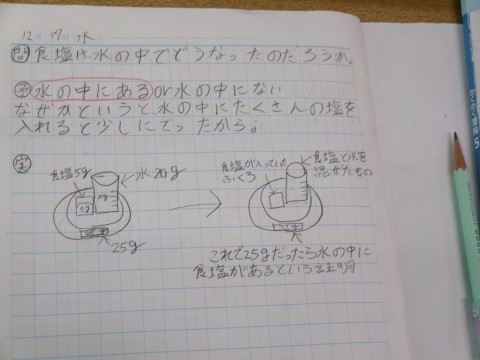 12月17日水
問 食塩は水の中でどうなったのだろうか。
予 水の中にあるor水の中にない
なぜかというと、水の中にたくさんの塩を
入れると少しにごったから。
実
食塩5g
水20g
25g
食塩が入っていた
ふくろ
食塩と水を
混ぜたもの
これで25gだったら水の中に
食塩があるという証明